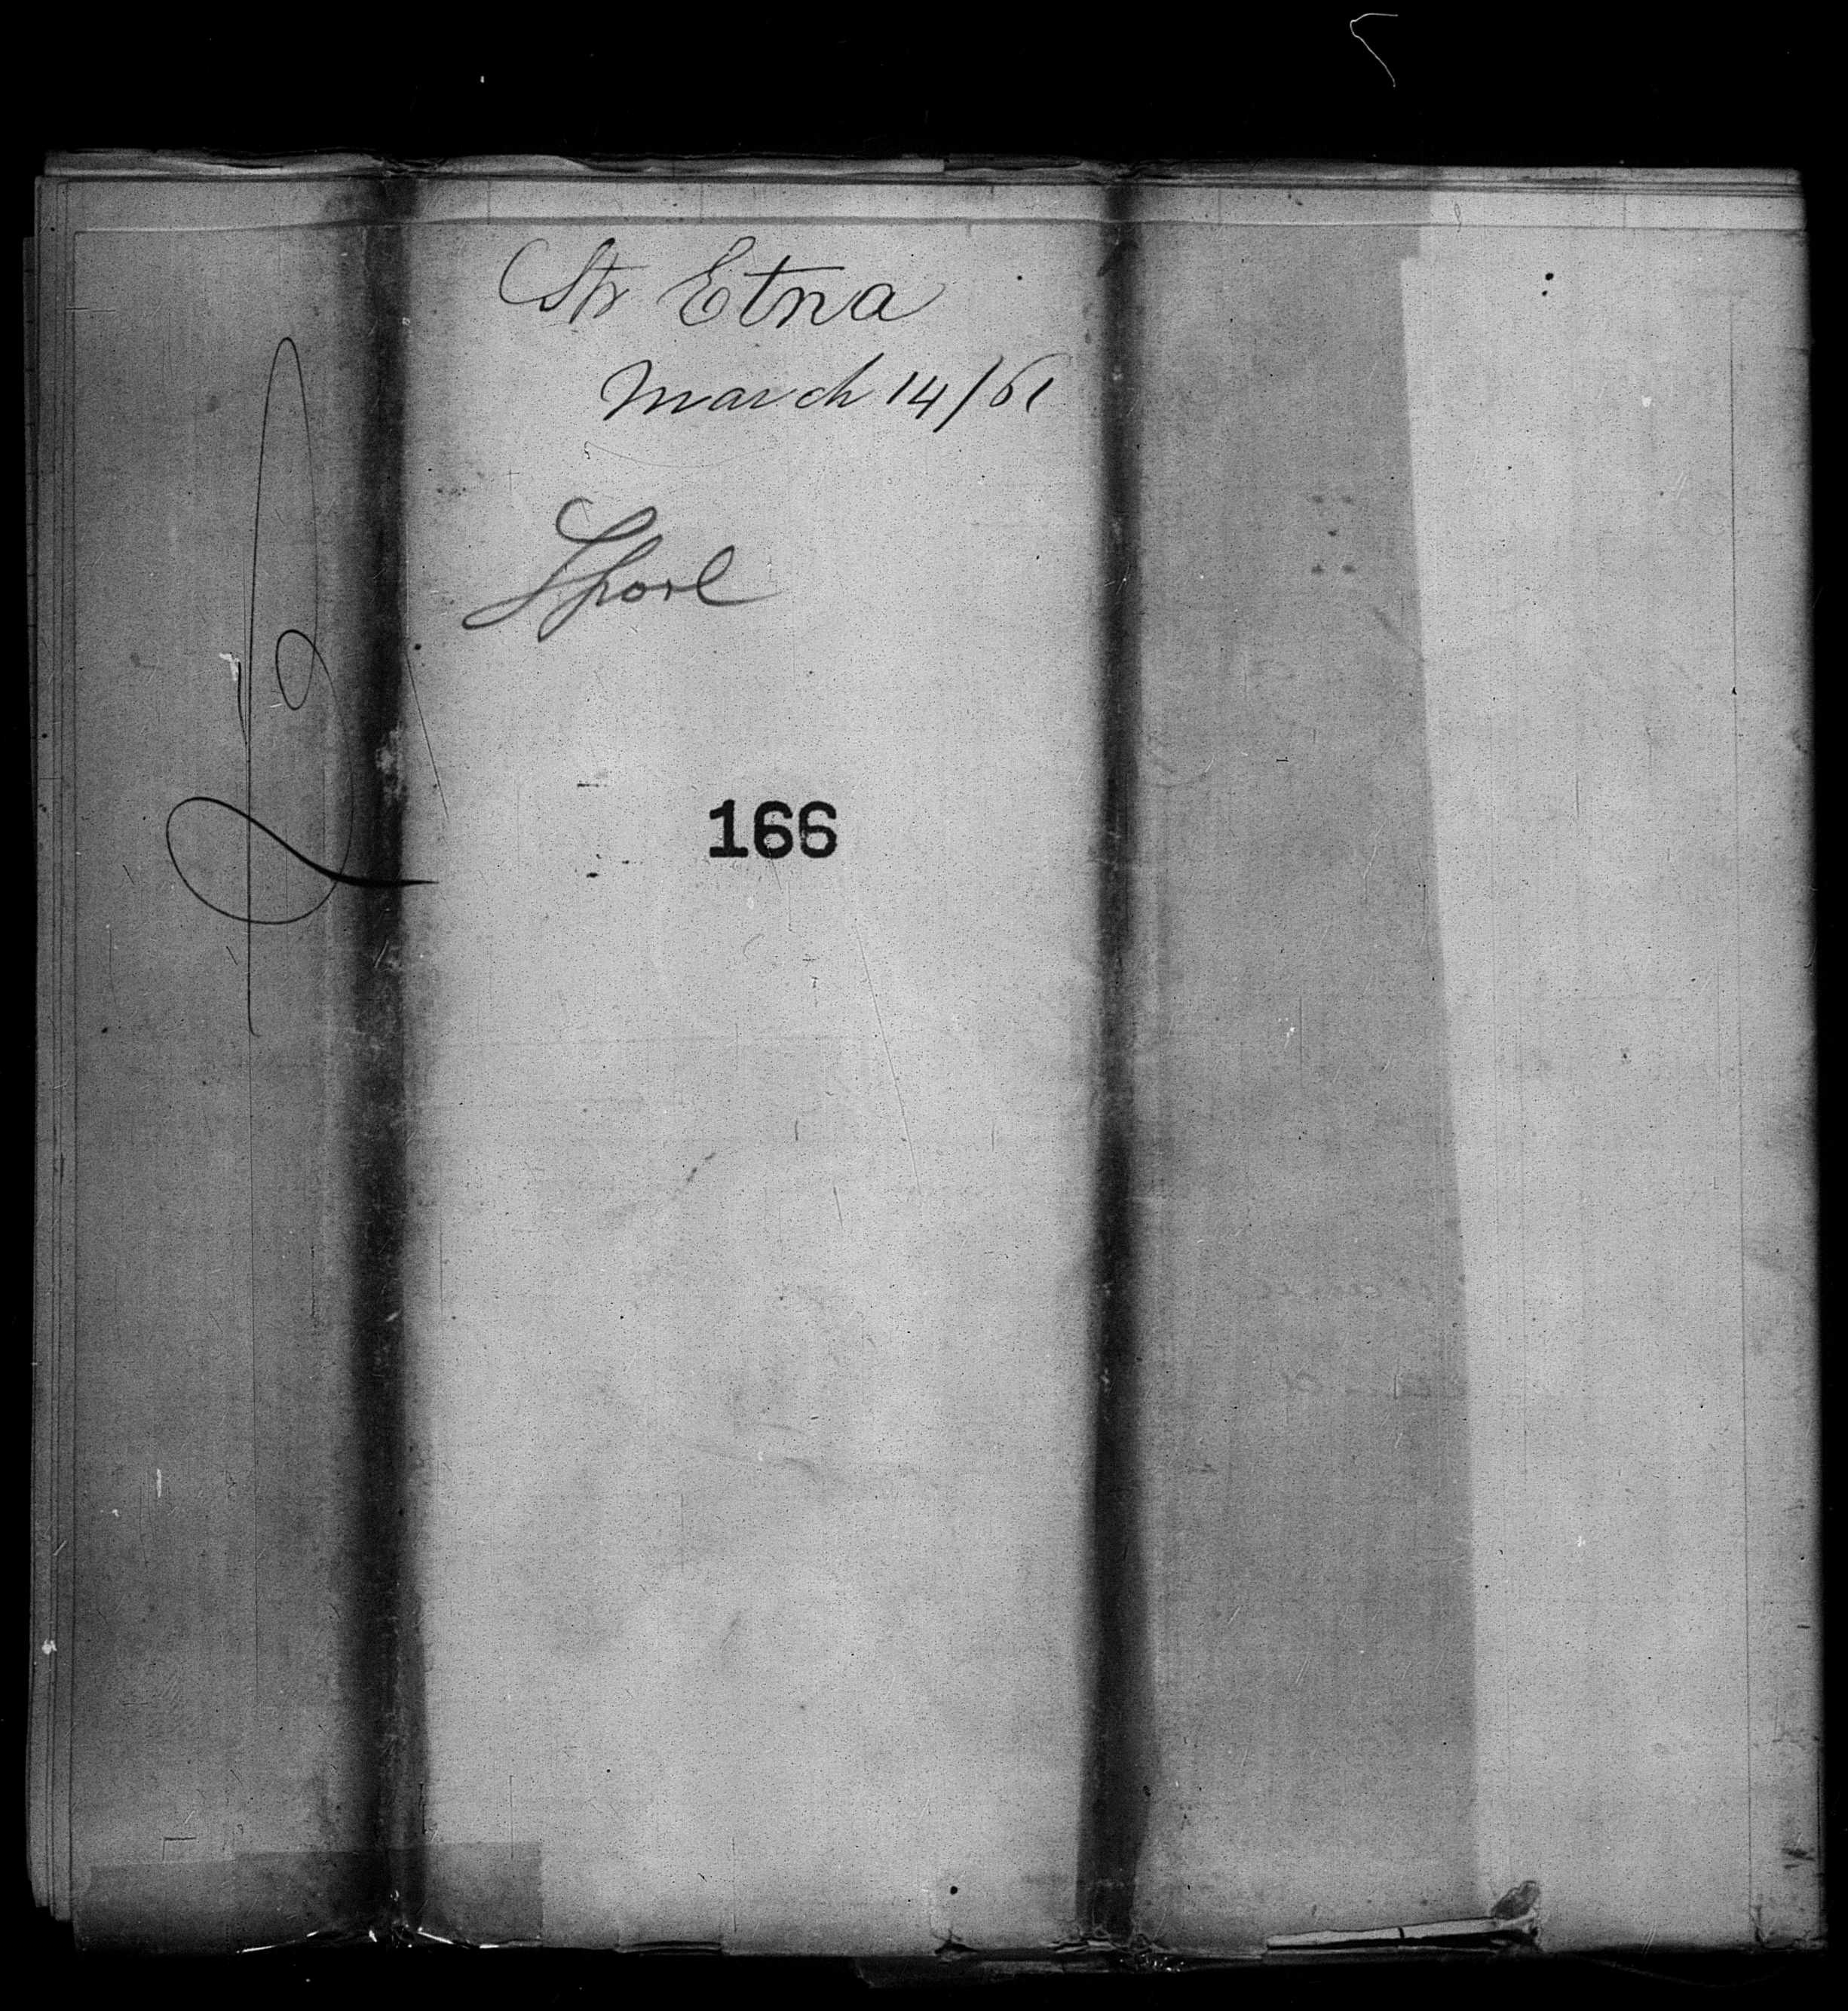 Str Etna
March 14/61
Lpool
166